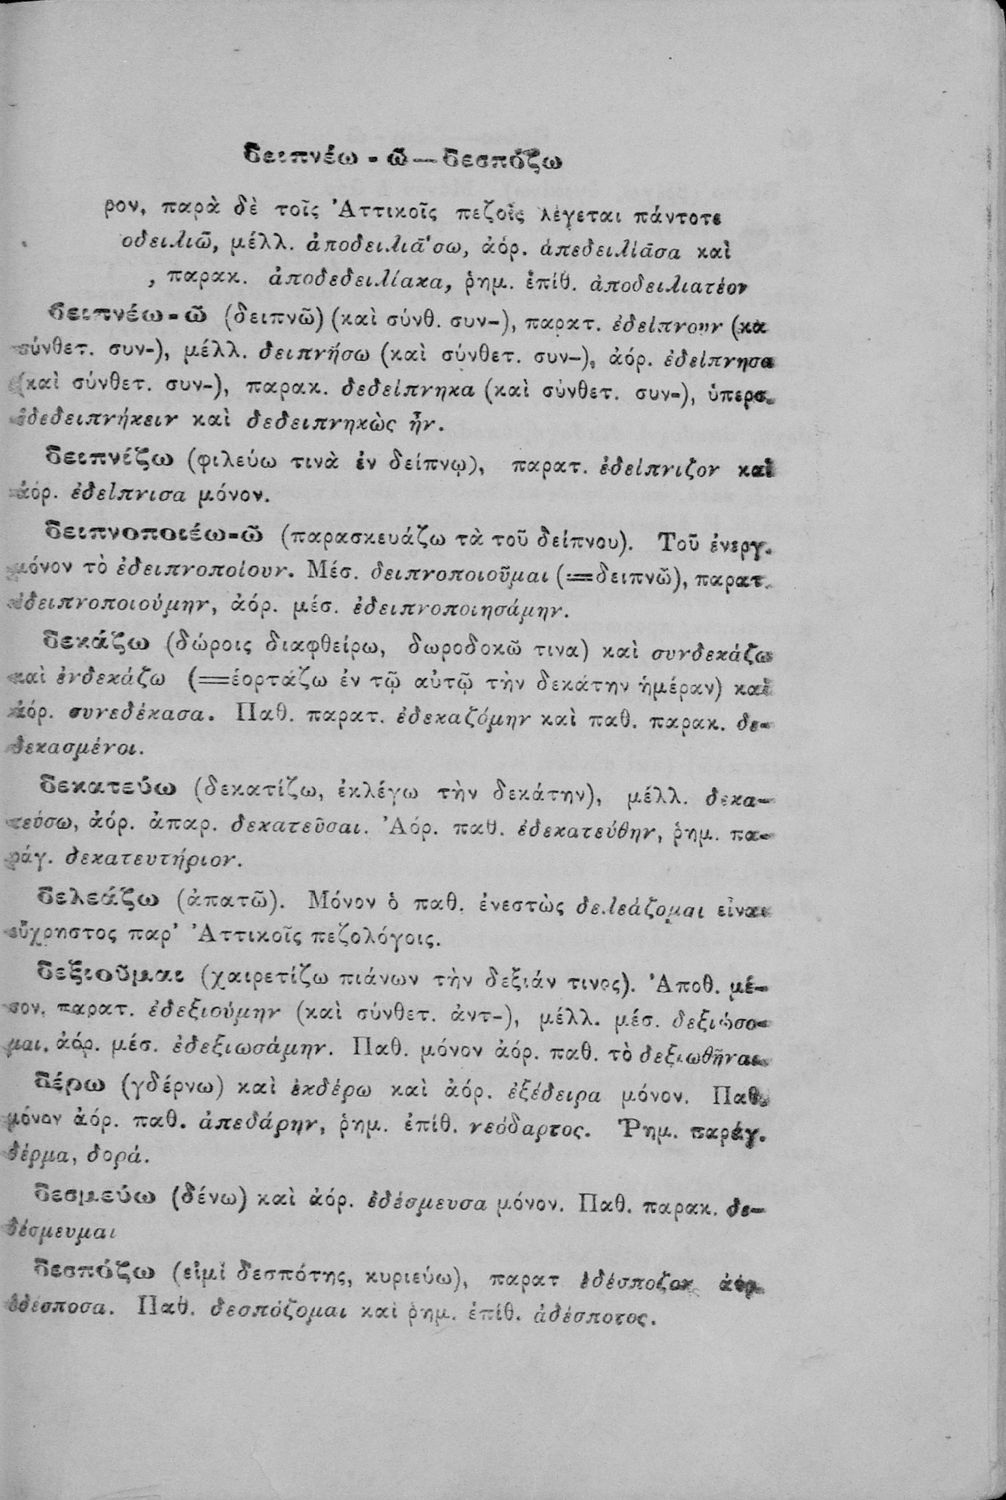 δειπνέω - ῶ — δεσπόζω
ρον, παρὰ δὲ τοῖς Ἀττικοῖς πεζοῖς λέγεται πάντοτε
οδειλιῶ, μέλλ. ἀποδειλιά̄σω, ἀόρ. ἀπεδειλίᾱσα καὶ
, παρακ. ἀποδεδειλίακα, ῥημ. ἐπίθ. ἀποδειλιατέον
δειπνέω-ῶ (δειπνῶ) (καὶ σύνθ. συν-), παρατ. ἐδείπνουν (κα
σύνθετ. συν-), μέλλ. δειπνήσω (καὶ σύνθετ. συν-), ἀόρ. ἐδείπνησα
(καὶ σύνθετ. συν-), παρακ. δεδείπνηκα (καὶ σύνθετ. συν-), ὑπερσ.
ἐδεδειπνήκειν καὶ δεδειπνηκὼς ἦν.
δειπνίζω (φιλεύω τινὰ ἐν δείπνῳ), παρατ. ἐδείπνιζον καὶ
ἀόρ. ἐδείπνισα μόνον.
δειπνοποιέω-ῶ (παρασκευάζω τὰ τοῦ δείπνου). Τοῦ ἐνεργ.
μόνον τὸ ἐδειπνοποίουν. Μέσ. δειπνοποιοῦμαι (=δειπνῶ), παρατ.
ἐδειπνοποιούμην, ἀόρ. μέσ. ἐδειπνοποιησάμην.
δεκάζω (δώροις διαφθείρω, δωροδοκῶ τινα) καὶ συνδεκάζω
καὶ ἐνδεκάζω (=ἑορτάζω ἐν τῷ αὐτῷ τὴν δεκάτην ἡμέραν) καὶ
ἀόρ. συνεδέκασα. Παθ. παρατ. ἐδεκαζόμην καὶ παθ. παρακ. δε-
δεκασμένοι.
δεκατεύω (δεκατίζω, ἐκλέγω τὴν δεκάτην), μέλλ. δεκα-
τεύσω, ἀόρ. ἀπαρ. δεκατεῦσαι. Ἀόρ. παθ. ἐδεκατεύθην, ῥημ. πα-
ράγ. δεκατευτήριον.
δελεάζω (ἀπατῶ). Μόνον ὁ παθ. ἐνεστὼς δελεάζομαι εἶναι
εὔχρηστος παρ' Ἀττικοῖς πεζολόγοις.
δεξιοῦμαι (χαιρετίζω πιάνων τὴν δεξιάν τινος). Ἀποθ. μέ-
σον, παρατ. ἐδεξιούμην (καὶ σύνθετ. ἀντ-), μέλλ. μέσ. δεξιώσο-
μαι, ἀόρ. μέσ. ἐδεξιωσάμην. Παθ. μόνον ἀόρ. παθ. τὸ δεξιωθῆναι.
δέρω (γδέρνω) καὶ ἐκδέρω καὶ ἀόρ. ἐξέδειρα μόνον. Παθ.
μόνον ἀόρ. παθ. ἀπεδάρην, ῥημ. ἐπίθ. νεόδαρτος. Ῥημ. παράγ.
δέρμα, δορά.
δεσμεύω (δένω) καὶ ἀόρ. ἐδέσμευσα μόνον. Παθ. παρακ. δε-
δέσμευμαι
δεσπόζω (εἰμὶ δεσπότης, κυριεύω), παρατ ἐδέσποζον ἀόρ.
ἐδέσποσα. Παθ. δεσπόζομαι καὶ ῥημ. ἐπίθ. ἀδέσποτος.